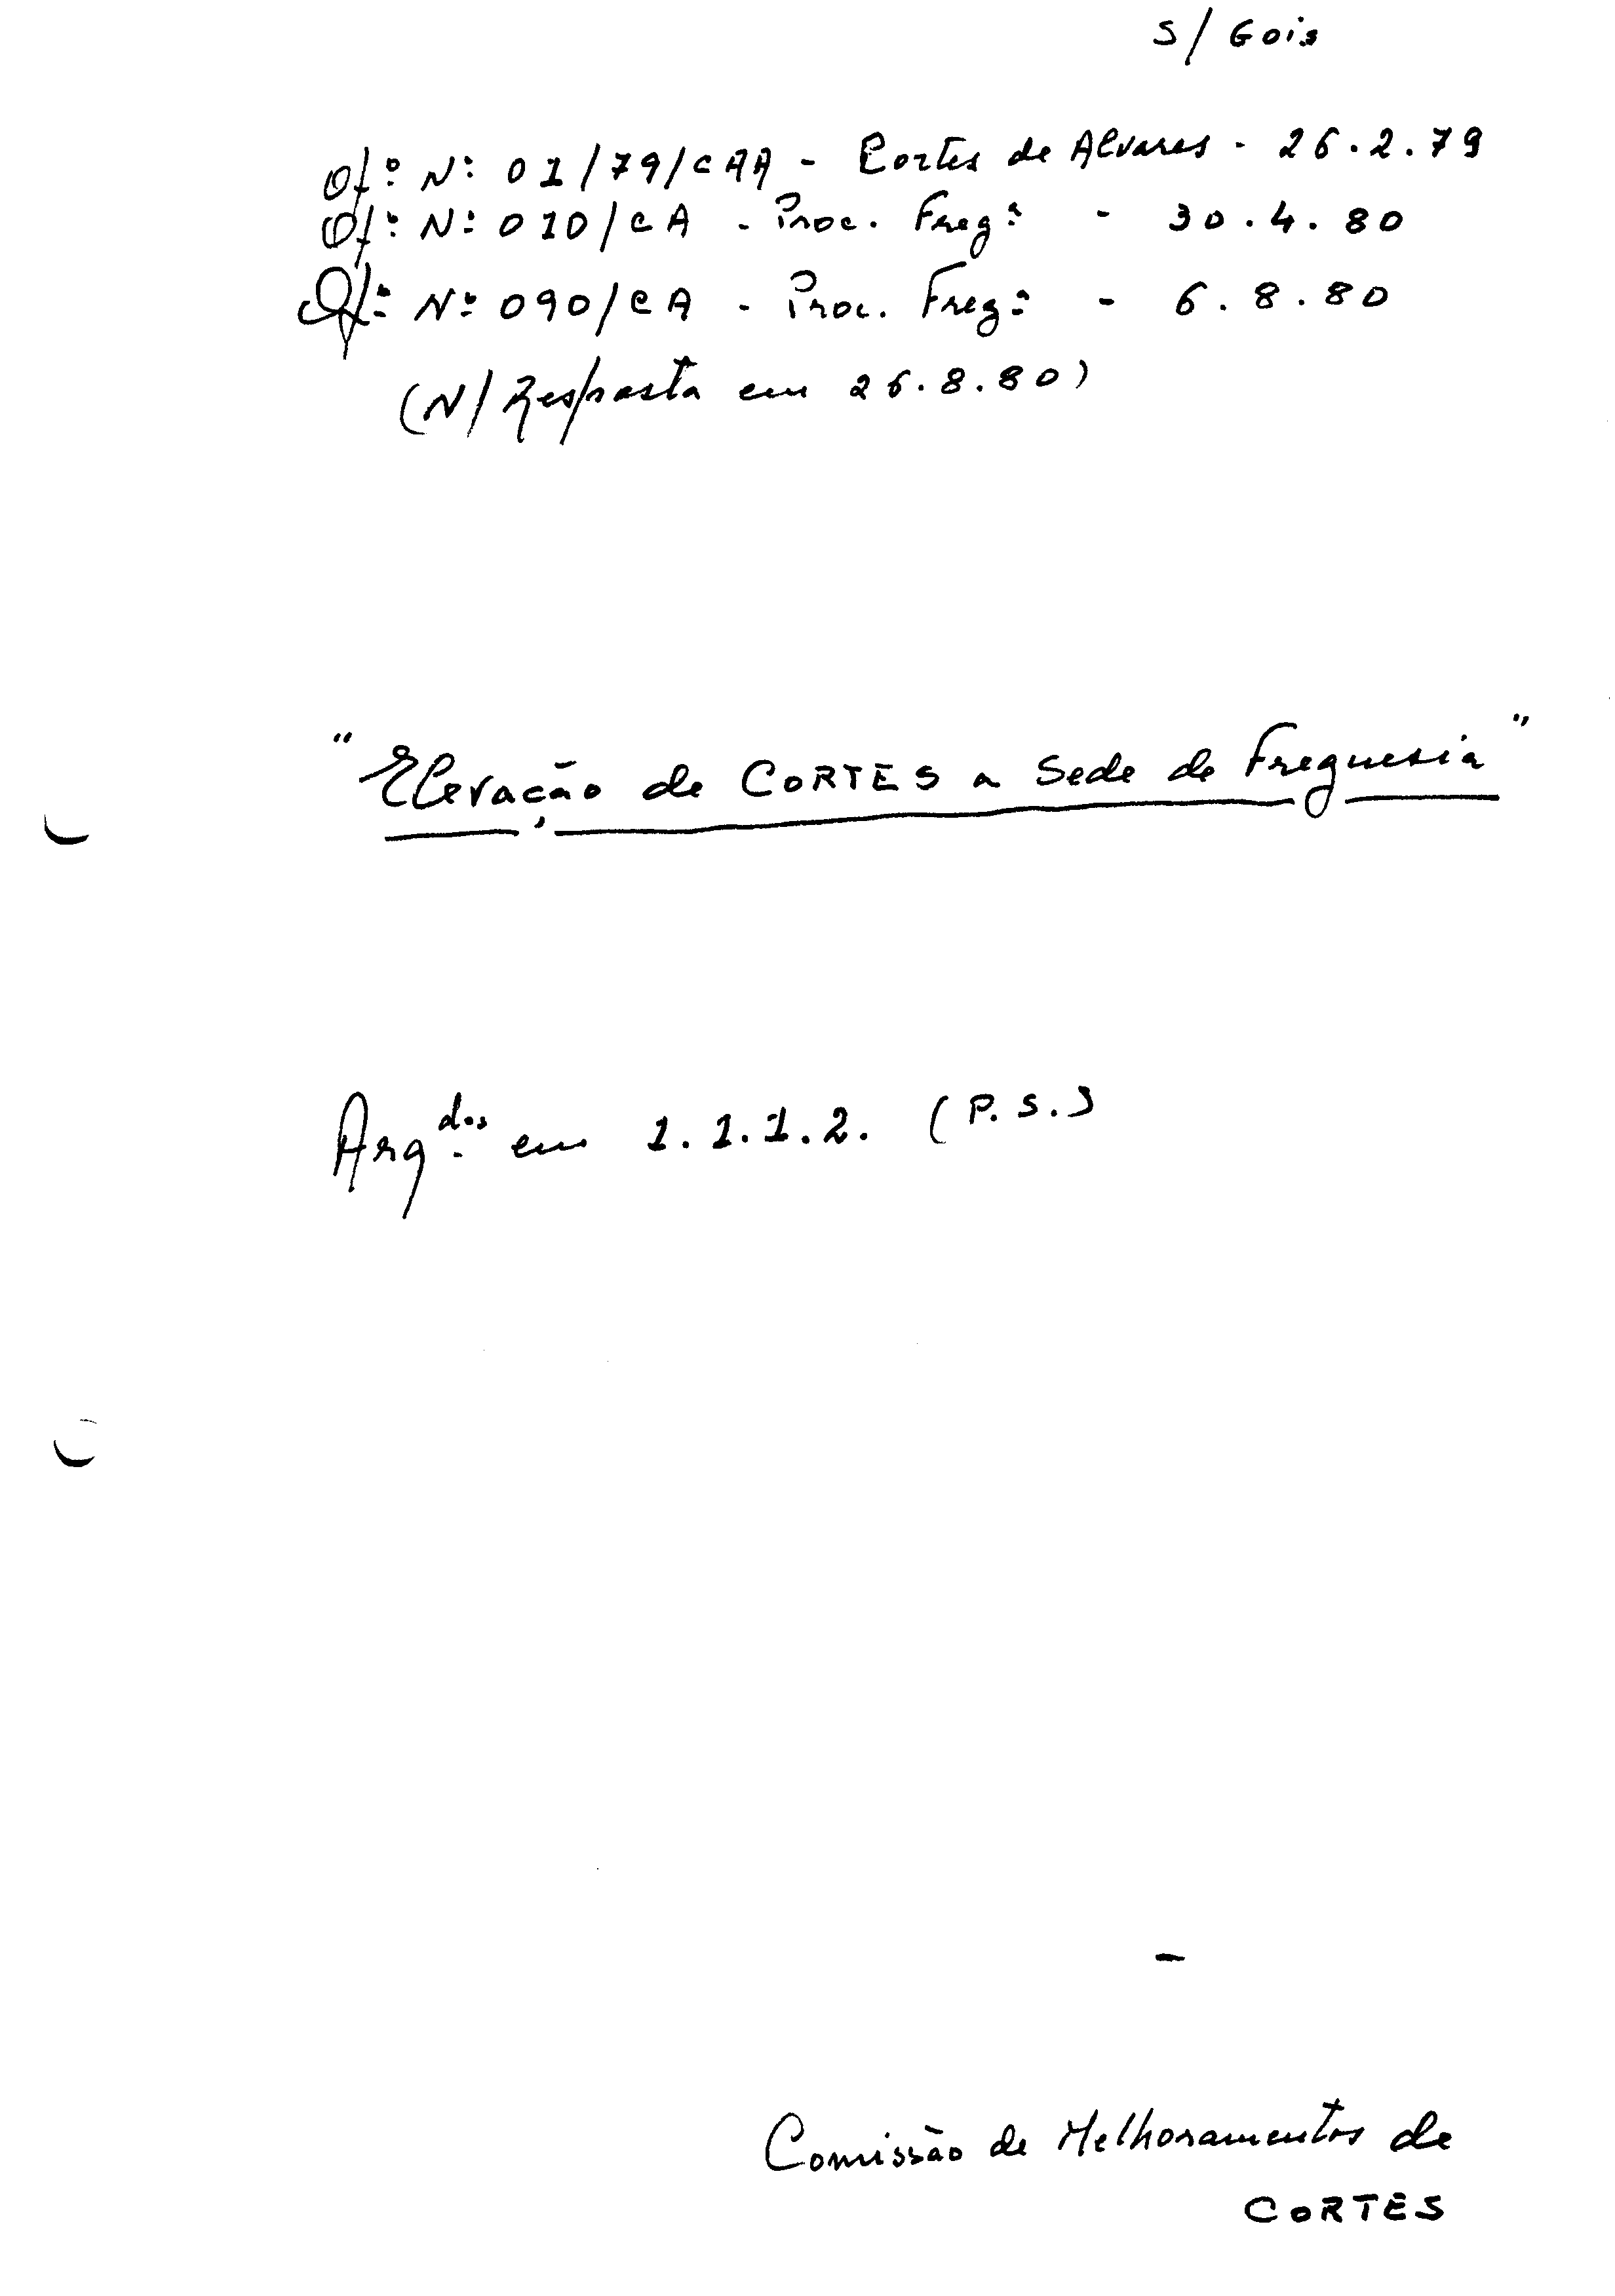 S/ Gois
Of.º Nº 01/79/CAA - Cortes de Alvares - 26.2.79
Of.º Nº 010/CA - Proc. Fregª - 30.4.80
Of.º Nº 090/CA - Proc. Fregª - 6.8.80
(N/ Resposta em 26.8.80)
"Elevação de CORTES a Sede de Freguesia"
Arq.dos em 1.1.1.2. (P.S.)
Comissão de Melhoramentos de
CORTES